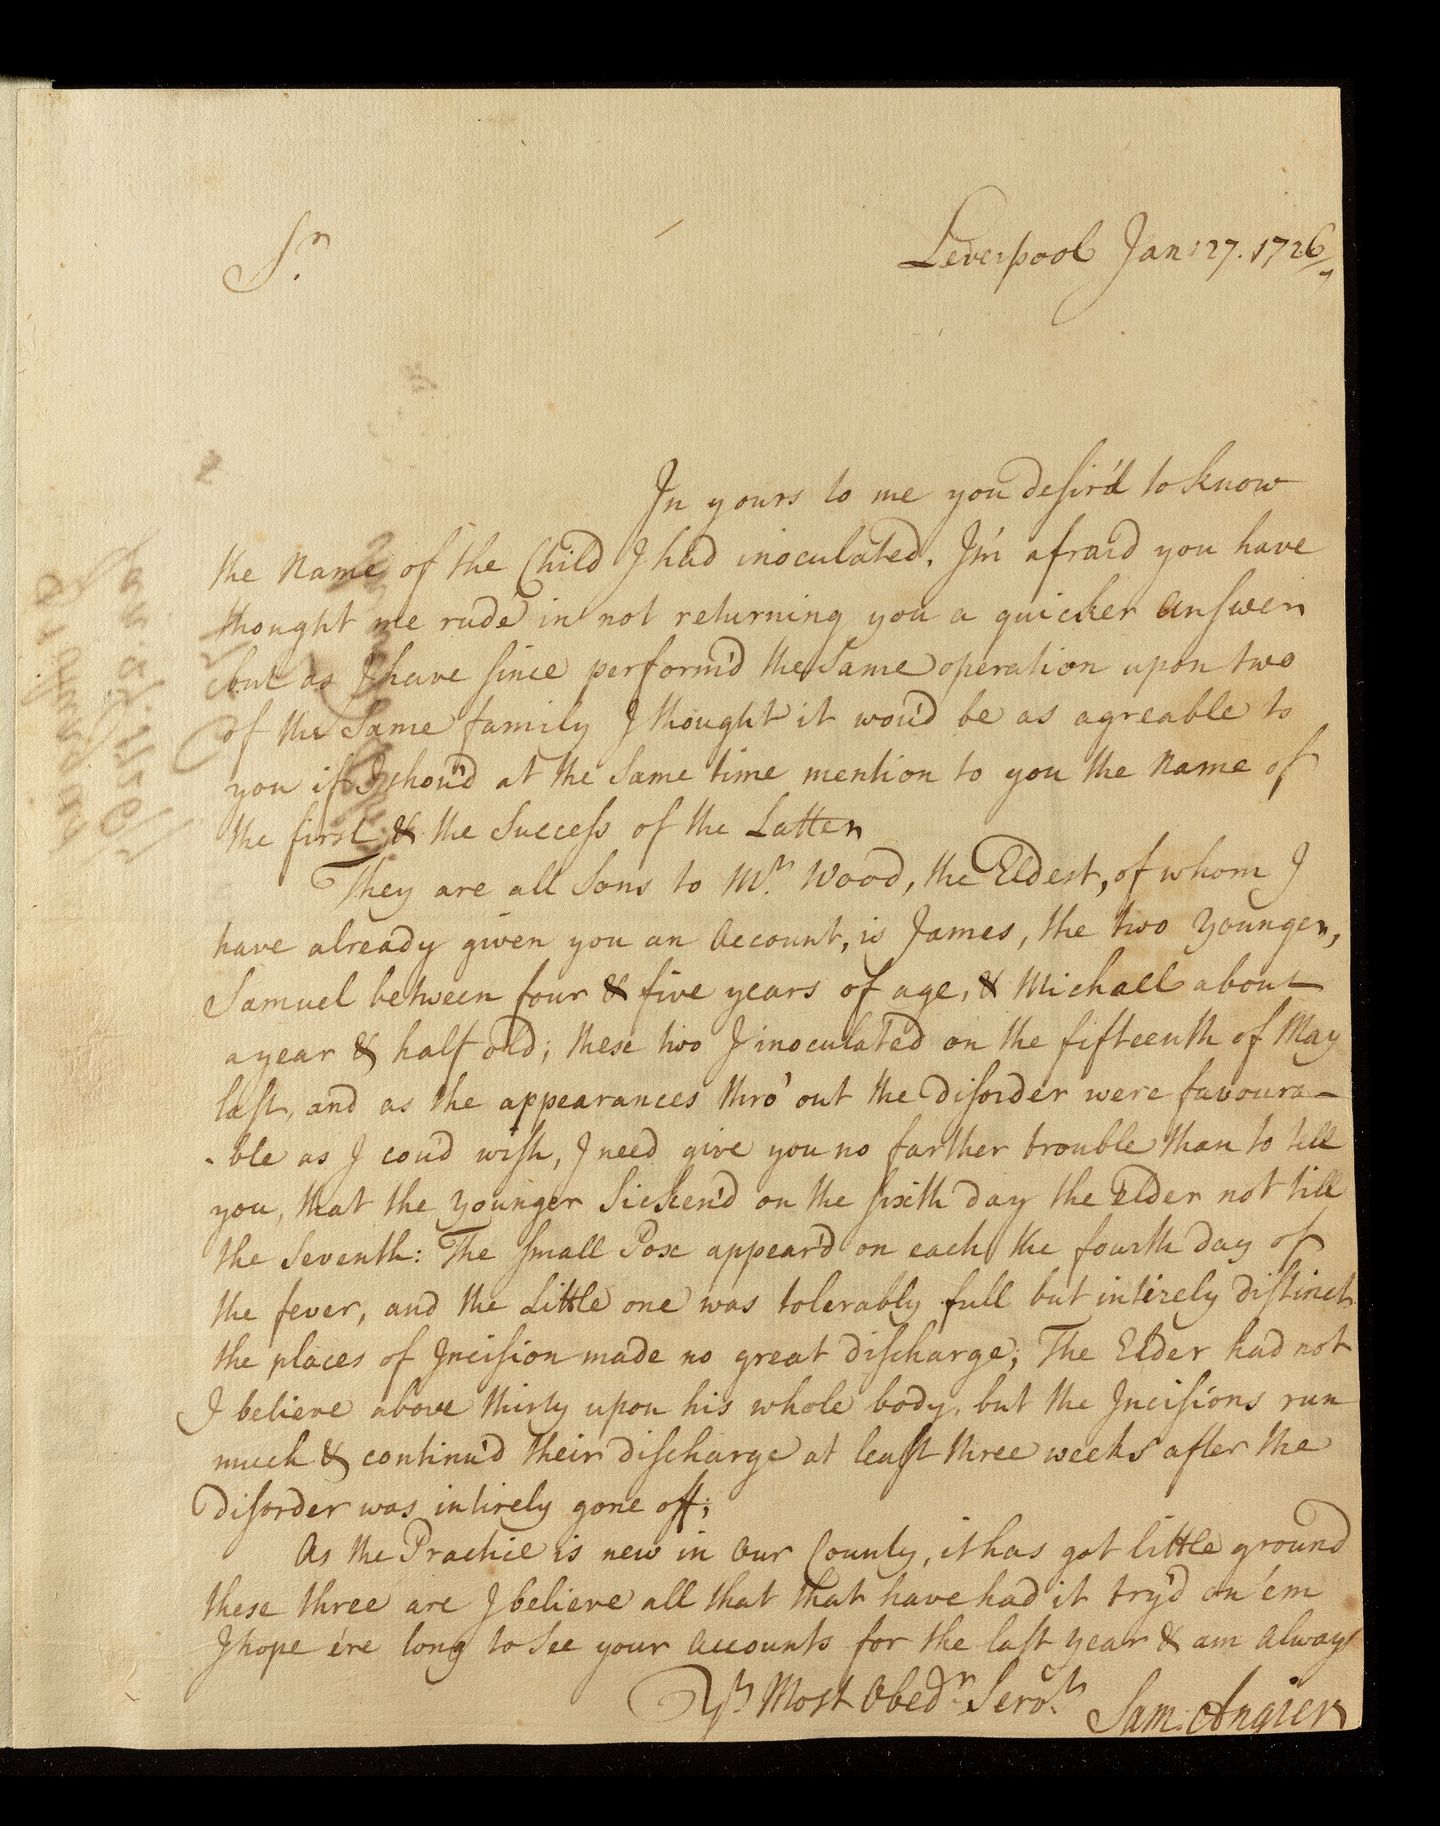 Sr.
Leverpool Jan: 27. 1726/7
In yours to me you desir'd to know
the Name of the Child I had inoculated. I'm afraid you have
thought me rude in not returning you a quicker Answer
but as I have since perform'd the Same operation upon two
of the Same family I thought it wou'd be as agreable to
you if I shou'd at the Same time mention to you the Name of
the first & the Success of the Latter
They are all Sons to Mr. Wood, the Eldest, of whom I
have already given you an Account, is James, the two Younger,
Samuel between four & five years of age, & Michall about
a year & half old; these two I inoculated on the fifteenth of May
last, and as the appearances thro' out the disorder were favoura-
-ble as I cou'd wish, I need give you no farther trouble than to tell
you, that the Younger Sicken'd on the sixth day the Elder not till
the Seventh: The Small Pox appear'd on each the fourth day of
the fever, and the Little one was tolerably full but intirely distinct
the places of Incision made no great discharge; The Elder had not
I believe above thirty upon his whole body, but the Incisions run
much & continu'd their discharge at least three weeks after the
disorder was intirely gone off;
As the Practice is new in Our County, it has got little ground
these three are I believe all that that have had it try'd on 'em
I hope e're long to See your Accounts for the last year & am Always
Yr. Most Obedt. Servt.
Sam: Angier